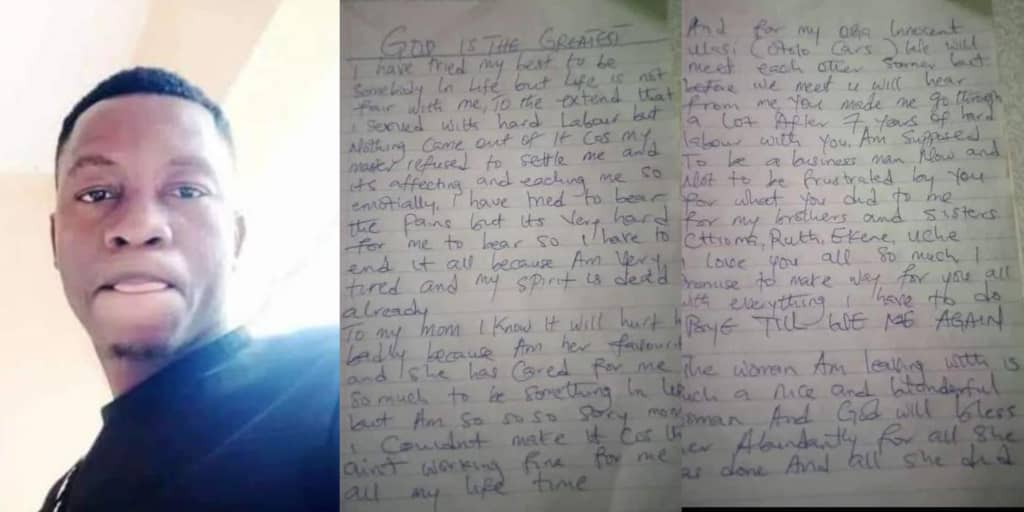 GOD IS THE GREATEST
I have tried my best to be
somebody In Life but life is not
fair with me, To the extend that
i served with hard Labour but
Nothing came out of it Cos my
master refused to settle me and
its affecting and eaching me so
emotially, I have tried to bear
the pains but its very hard
for me to bear so i have to
end it all because Am Very
tired and my spirit is dead
already
To my mom I know it will hurt h
badly because Am her favourit
and she has Cared for me
so much to be something in
but Am so so so sorry mom
i Couldnt make it Cos
aint working fine for me
all my life time
And for my oga Innocent
(Otelo Cars) We will
meet each other Sooner but
before we meet u will hear
from me You made me go through
a lot After 7 years of hard
labour with you. Am supposed
To be a business man Now and
Not to be frustrated by you
for what you did to me
for my brothers and sisters
Chioma, Ruth, Ekene, Uche
I love you all so much I
promise to make way for you all
with everything i have to do
BOYE TILL WE ME AGAIN
The woman Am leaving with is
such a nice and Wonderful
woman And God will bless
her Abundantly for all she
as done And all she did